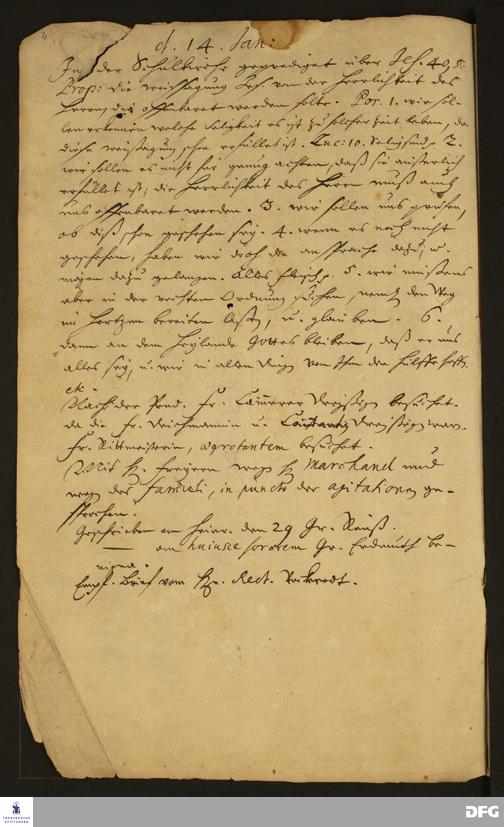 d. 14. Jan:
In der Schulkirche geprediget über Jes. 40, 5.
Prop: die weissagung Jes. von der Herrlichkeit des
Herren die offenbaret werden solte. Por. 1. wir sol-
len erkennen welche seligkeit es ist zu solcher Zeit leben, da
diese weissagung schon erfüllet ist. Luc: 10. Selig sind, 2.
wir sollen es nicht für genug achten, daß sie äusserlich
erfüllet ist; die Herrlichkeit des Herren muß auch
uns offenbaret werden. 3. wir sollen uns prüfen,
ob diß schon geschehen sey. 4. wenn es noch nicht
geschehen, haben wir doch die ansprache dazu, u.
mögen dazu gelangen. Alles fleisch. 5. wir müssens
aber in der rechten Ordnung suchen, nemlich den Weg
im Hertzen bereiten lassen, u. glauben. 6.
dann an dem Heylande Gottes bleiben, daß er uns
alles sey, u. wir in allen Dingen von Ihm die Hülffe
etc.
Nach der Pred. Fr. Cammerer besuchet.
da die Fr. u.
Fr. Rittmeisterin, aegrotantem besuchet.
Mit H. Freyern wegen H Marchand und
wegen des famuli, in puncto der agitationen ge-
sprochen.
Geschrieben an Heinr. den 29 Gr. Reuß.
— an huius sororem Gr. Erdmuth Be-
nigna.
Empf. Brief vom Hn. Rect.
DFG